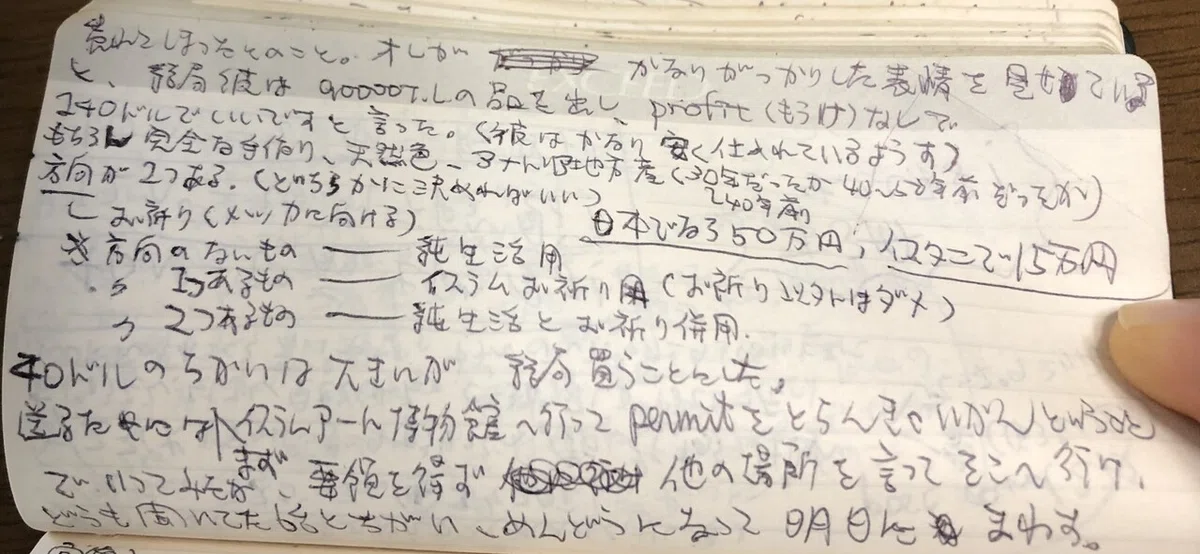 売れてしまったとのこと。オレが かなりがっかりした表情を見せている
と、結局彼は90000T.Lの品を出し、profit(もうけ)なしで
240ドルでいいですと言った。(彼はかなり安く仕入れているようす)
もちろん完全な手作り、天然色、アナトリア地方産(30年だったか40〜50年前だったか)
└40年前
方向が2つある。(どちらかに決めればいい)
└ お祈り(メッカに向ける)
日本でなら50万円、イスタンで15万円
※方向のないもの —— 純生活用
〃 1つあるもの —— イスラムお祈り用(お祈り以外はダメ)
〃 2つあるもの —— 純生活とお祈り併用.
40ドルのちがいは大きいが 結局買うことにした。
送るためには イスラムアート博物館へ行ってpermitをとらんといかんということ
でいってみたが、まず要領を得ず 他の場所を言ってそこへ行け、
どうも聞いてた話とちがい、めんどうになって明日にまわす。